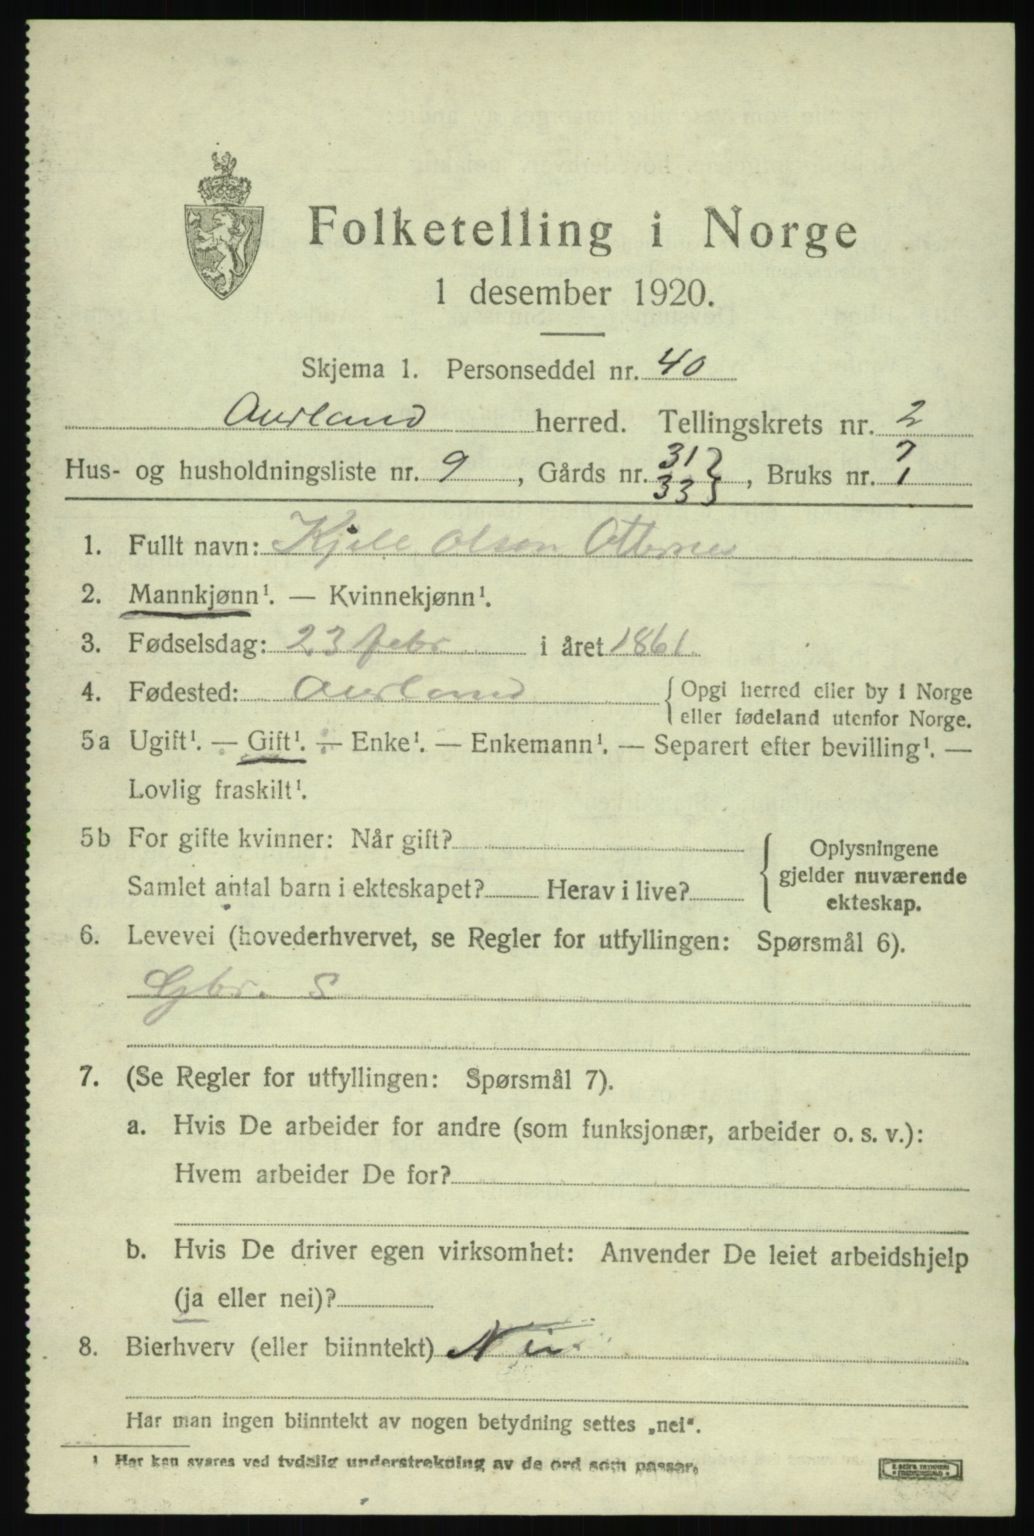 Folketelling i Norge
1 desember 1920.
Skjema 1. Personseddel nr. 40
Aurland herred. Tellingskrets nr. 2
Hus- og husholdningsliste nr. 9, Gårds nr. 31 } 33, Bruks nr. 7 1
1. Fullt navn: Kjell Olson Otternes
2. Mannkjønn¹. — Kvinnekjønn¹.
3. Fødselsdag: 23 febr i året 1861.
4. Fødested: Aurland { Opgi herred eller by i Norge
eller fødeland utenfor Norge.
5a Ugift¹. — Gift¹. — Enke¹. — Enkemann¹. — Separert efter bevilling¹. —
Lovlig fraskilt¹.
5b For gifte kvinner: Når gift? { Oplysningene
Samlet antal barn i ekteskapet? Herav i live? gjelder nuværende
ekteskap.
6. Levevei (hovederhvervet, se Regler for utfyllingen: Spørsmål 6).
Gbr. S
7. (Se Regler for utfyllingen: Spørsmål 7).
a. Hvis De arbeider for andre (som funksjonær, arbeider o. s. v.):
Hvem arbeider De for?
b. Hvis De driver egen virksomhet: Anvender De leiet arbeidshjelp
(ja eller nei)?
8. Bierhverv (eller biinntekt) Nei.
Har man ingen biinntekt av nogen betydning settes „nei“.
¹ Her kan svares ved tydelig understrekning av de ord som passer.